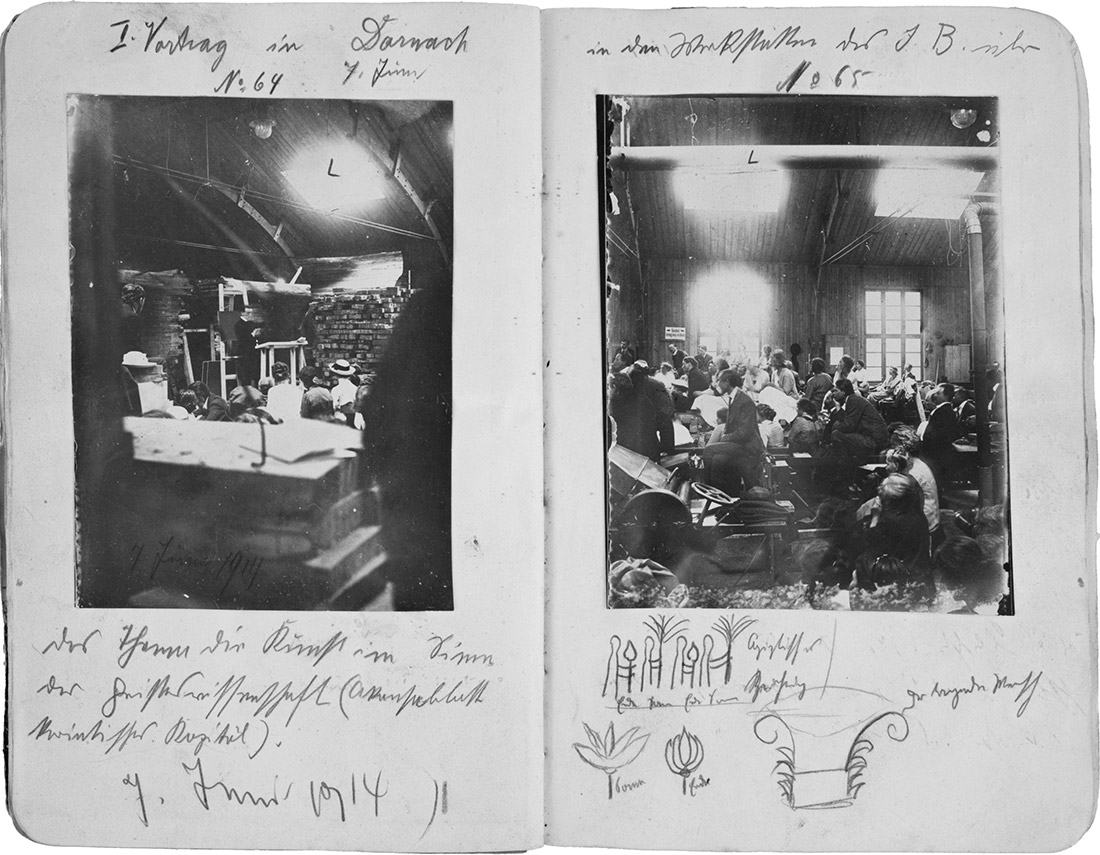 I. Vortrag in Dornach
7. Juni
No. 64
L
7 Juni 1914
das Thema die Kunst im Sinne
der Geisteswissenschaft (Akanthusblatt
korintisches Kapitäl).
7. Juni 1914
in den Werkstätten des J. B.
No 65
L
Erde Sonne Erde Sonne
Sonne
Erde
Der tragende Mensch